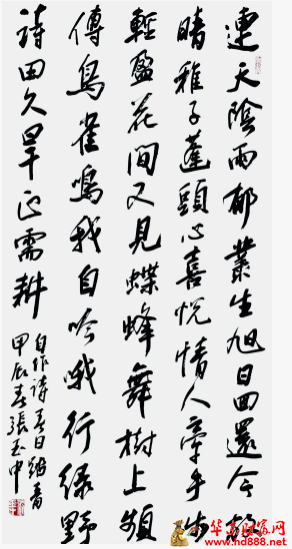 連天陰雨郁叢生旭日回還今放
晴稚子蓬頭心喜悅情人牽手步
輕盈花間又見蝶蜂舞樹上頻
傳鳥雀鳴我自吟哦行綠野
詩田久旱正需耕
自作詩春日踏青
甲辰春張玉中
www.hd888.net